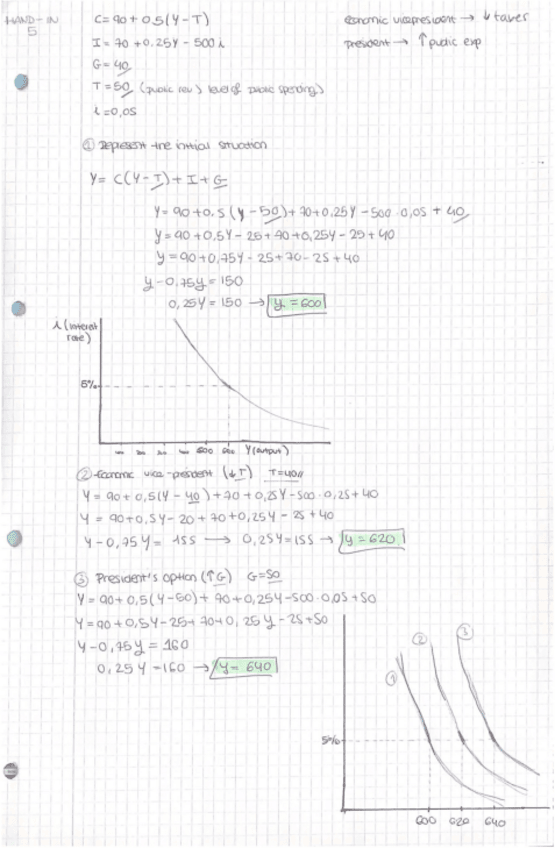 HAND-IN
5
C = 90 + 0,5 (Y - T)
I = 70 + 0,25Y - 500i
G = 40
T = 50 (public rev.) level of public spending)
i = 0,05
economic vicepresident → ↓ taxes
president → ↑ public exp
① Represent the initial situation
Y = C(Y - T) + I + G
Y = 90 + 0,5 (Y - 50) + 70 + 0,25Y - 500 · 0,05 + 40
Y = 90 + 0,5Y - 25 + 70 + 0,25Y - 25 + 40
Y = 90 + 0,75Y - 25 + 70 - 25 + 40
Y - 0,75Y = 150
0,25Y = 150 → Y = 600
i (interest
rate)
5%
600
Y (output)
② Economic vice-president (↓T) T=40
Y = 90 + 0,5(Y - 40) + 70 + 0,25Y - 500 · 0,25 + 40
Y = 90 + 0,5Y - 20 + 70 + 0,25Y - 25 + 40
Y - 0,75Y = 155 → 0,25Y = 155 → Y = 620
③ President's option (↑G) G=50
Y = 90 + 0,5(Y - 50) + 70 + 0,25Y - 500 · 0,05 + 50
Y = 90 + 0,5Y - 25 + 70 + 0,25Y - 25 + 50
Y - 0,75Y = 160
0,25Y = 160 → Y = 640
① ② ③
5%
600 620 640